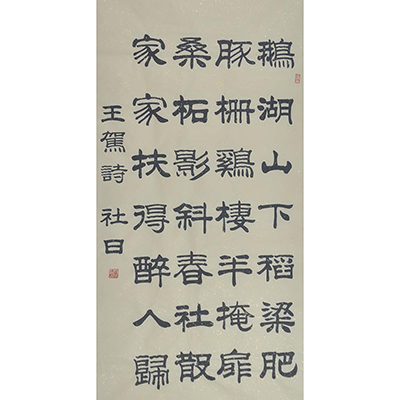 鵝湖山下稻粱肥
豚柵鷄棲半掩扉
桑柘影斜春社散
家家扶得醉人歸
王駕詩 社日